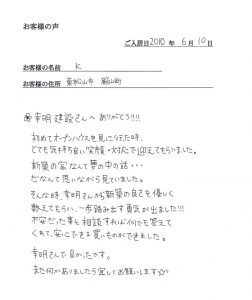 お客様の声
ご入居日2010 年 6月 10日
お客様の名前 K
お客様の住所 東松山市 殿山町
幸明建設さんへ ありがとう!!!!
初めてオープンハウスを見に行た時、
とても気持ち良い笑顔・対応で迎えてもらいました。
新築の家なんて夢の中の話・・・
だなんて思いながら見ていました。
そんな時 幸明さんから新築の良さを優しく
教えてもらい、一歩踏み出す勇気が出ました!!!
不安だった事も相談すれば何でも答えて
くれて、安心できる買いものができました。
幸明さんで良かったです。
また何かありましたら宜しくお願いします☆